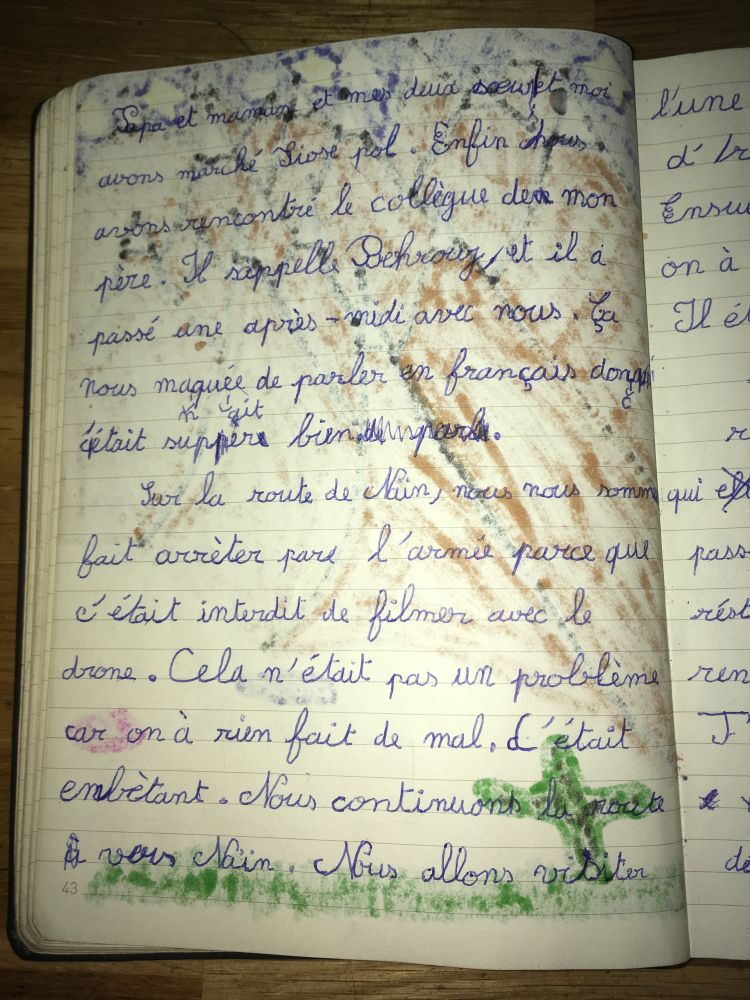 Papa et maman et mes deux sœurs et moi
avons marché Siose pol. Enfin nous
avons rencontré le collègue de mon
père. Il sappelle Behrouz, et il a
passé une après-midi avec nous. Ça
nous maquée de parler en français donc
c'était supper bien
Sur la route de Naïn, nous nous somme
fait arrèter pare l'armée parce que
c'était interdit de filmer avec le
drone. Cela n'était pas un problème
car on à rien fait de mal. C'était
embètant. Nous continuons la route
à vers Naïn. Nous allons visiter
43
l'une
d'Ir
Ensu
on à
Il ét
r
qui
pass
rést
ren
J'
dé